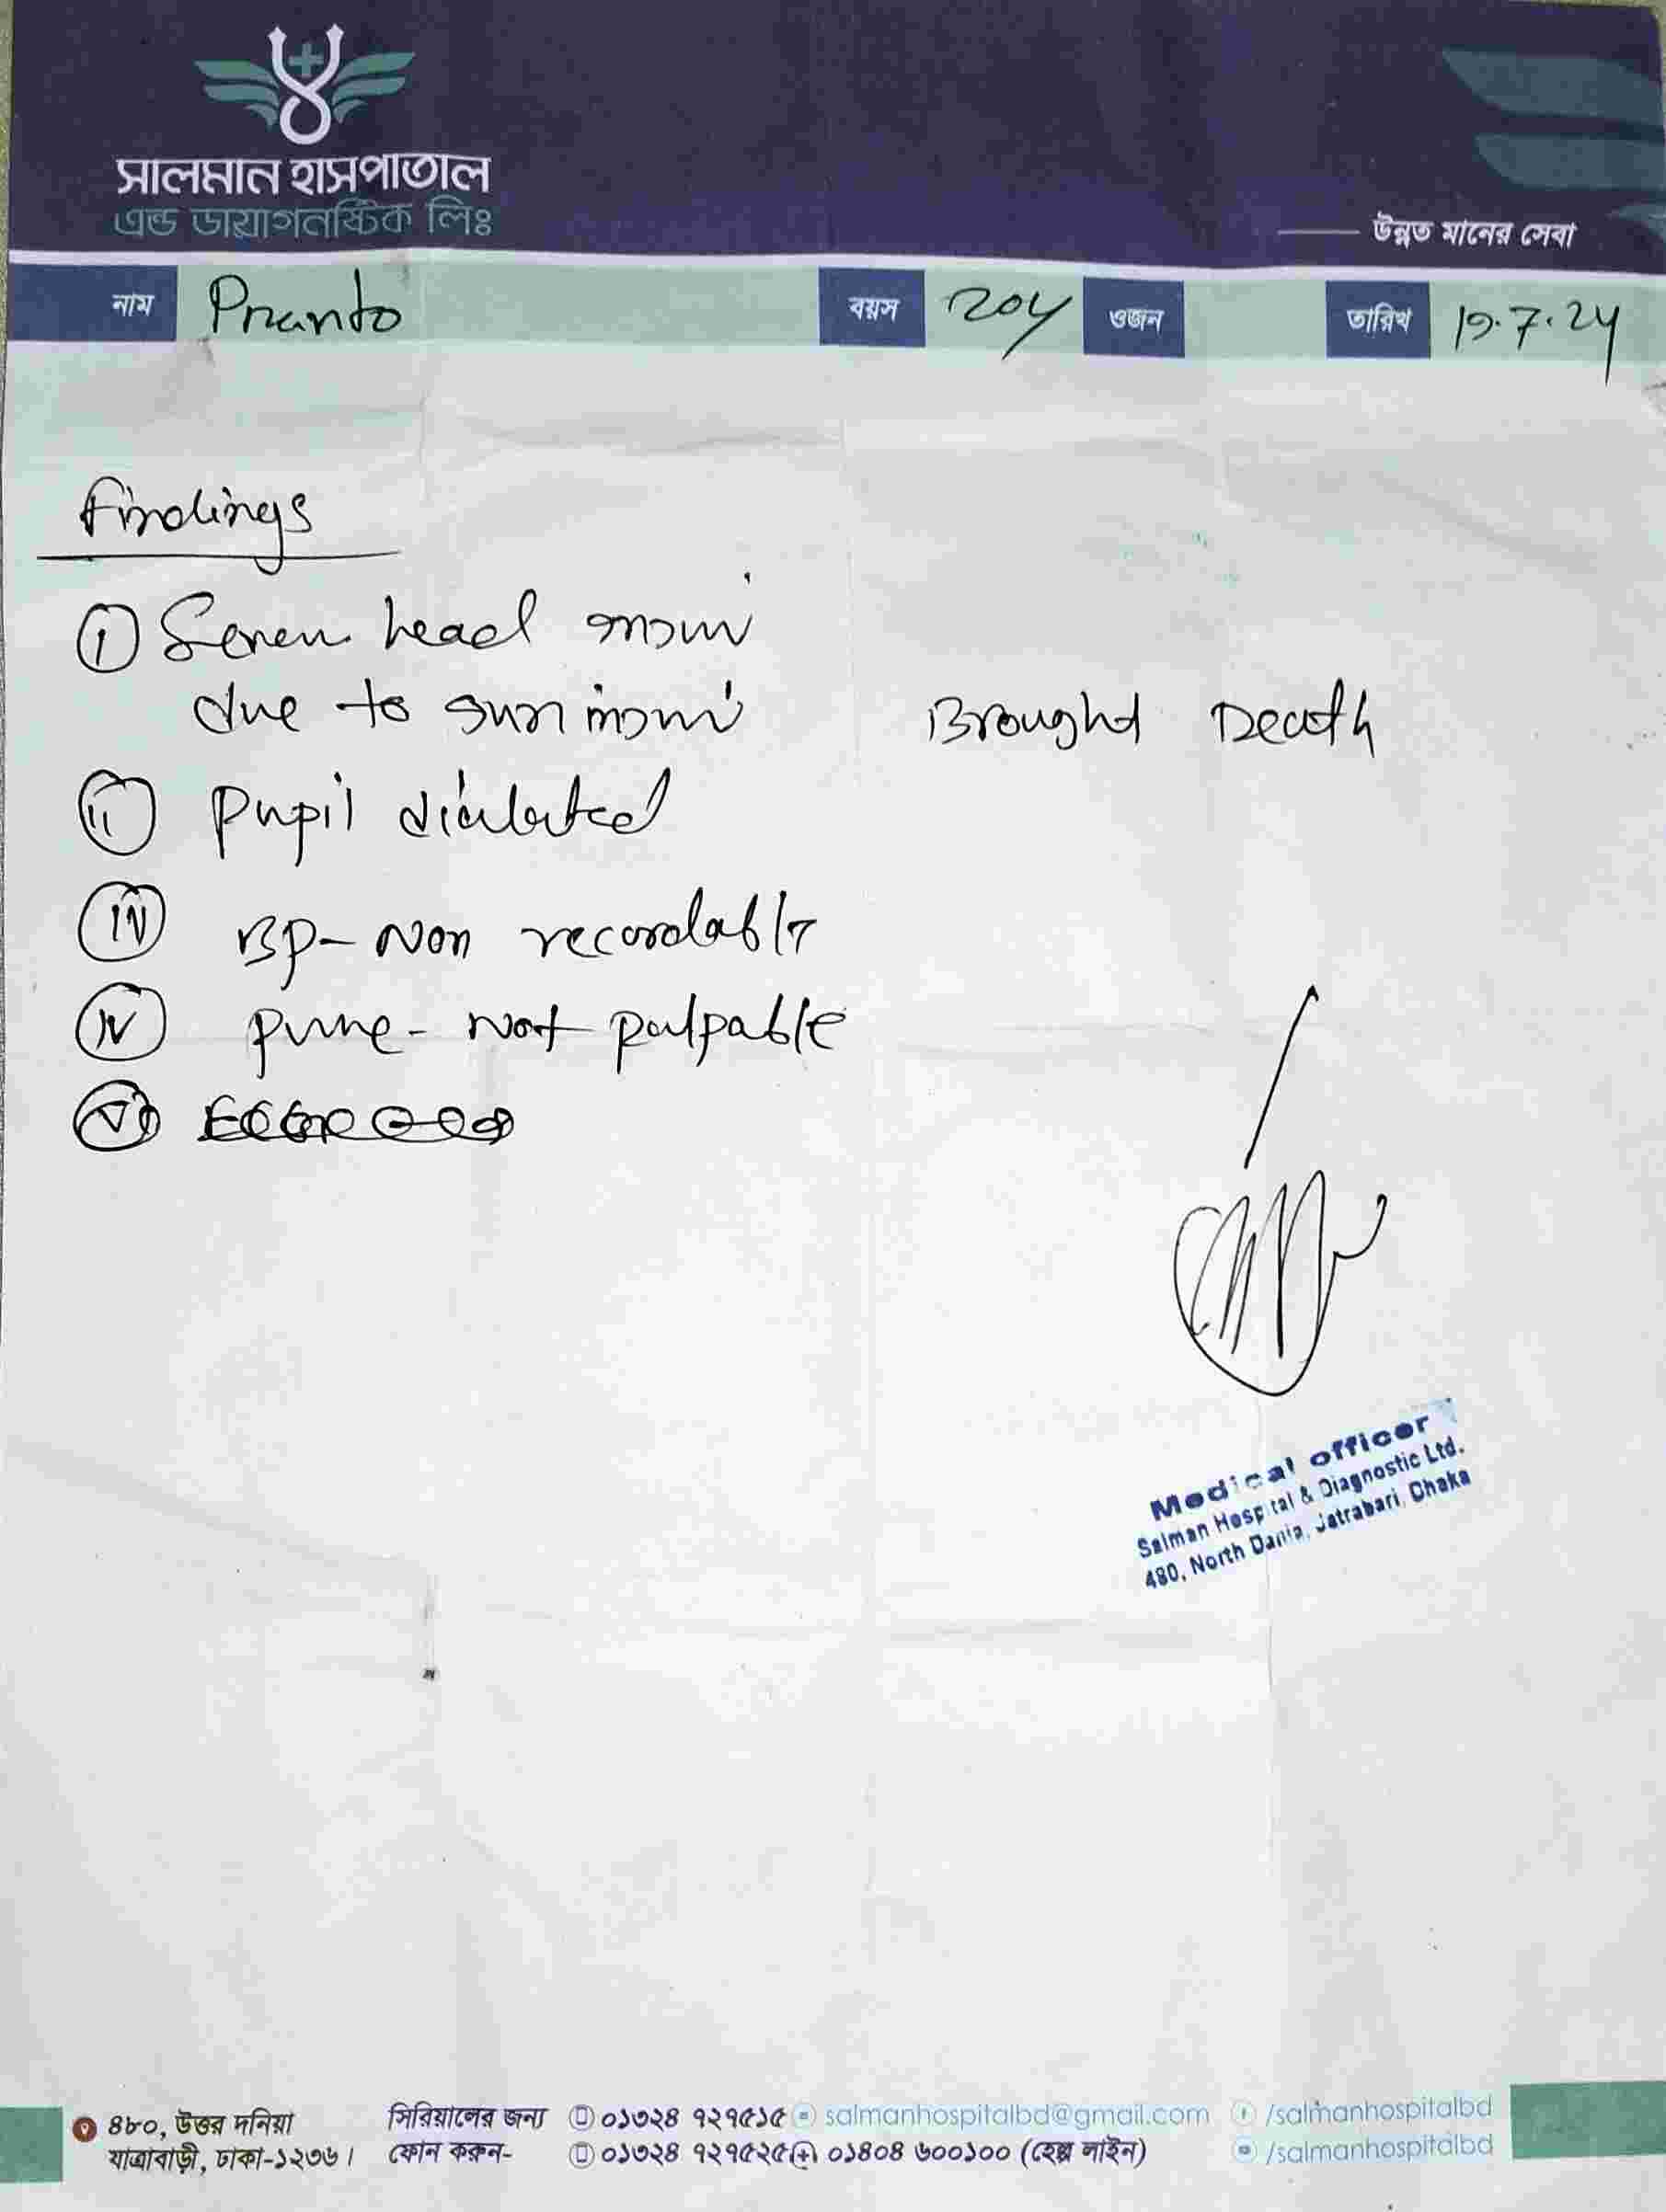 সালমান হাসপাতাল
এন্ড ডায়াগনস্টিক লিঃ
উন্নত মানের সেবা
নাম Pranto বয়স 20y ওজন তারিখ 19.7.24
Findings
(i) head
due to Brought Death
(ii) Pupil
(iii) BP- Non recordable
(iv) not palpable
(v)
Medical officer
Salman Hospital & Diagnostic Ltd.
480, North Dania, Jatrabari, Dhaka
৪৮০, উত্তর দনিয়া সিরিয়ালের জন্য ০১৩২৪ ৭২৭৫১৫ salmanhospitalbd@gmail.com /salmanhospitalbd
যাত্রাবাড়ী, ঢাকা-১২৩৬। ফোন করুন- ০১৩২৪ ৭২৭৫২৫ ০১৪০৪ ৬০০১০০ (হেল্প লাইন) /salmanhospitalbd